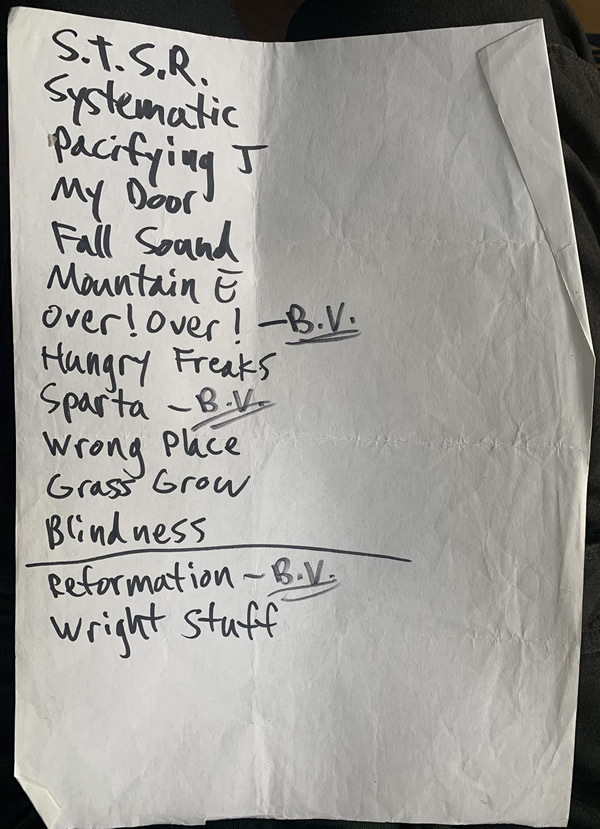 S.T.S.R.
Systematic
Pacifying J
My Door
Fall Sound
Mountain E
Over! Over! - B.V.
Hungry Freaks
Sparta - B.V.
Wrong Place
Grass Grow
Blindness
Reformation - B.V.
Wright Stuff